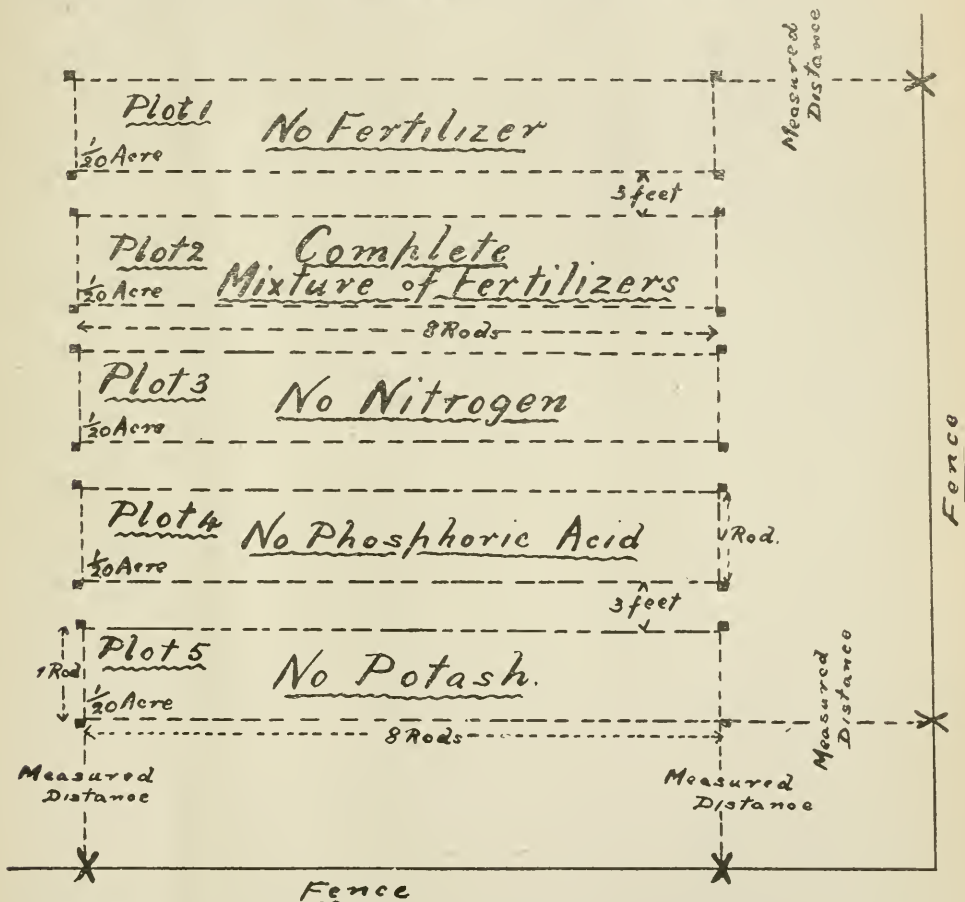 Measured
Distance
Plot 1
No Fertilizer
1/20 Acre
3 feet
Plot 2
Complete
Mixture of Fertilizers
1/20 Acre
8 Rods
Plot 3
No Nitrogen
1/20 Acre
Fence
Plot 4
No Phosphoric Acid
1 Rod.
1/20 Acre
3 feet
Plot 5
No Potash.
1 Rod
1/20 Acre
8 Rods
Measured
Distance
Measured
Distance
Measured
Distance
Fence